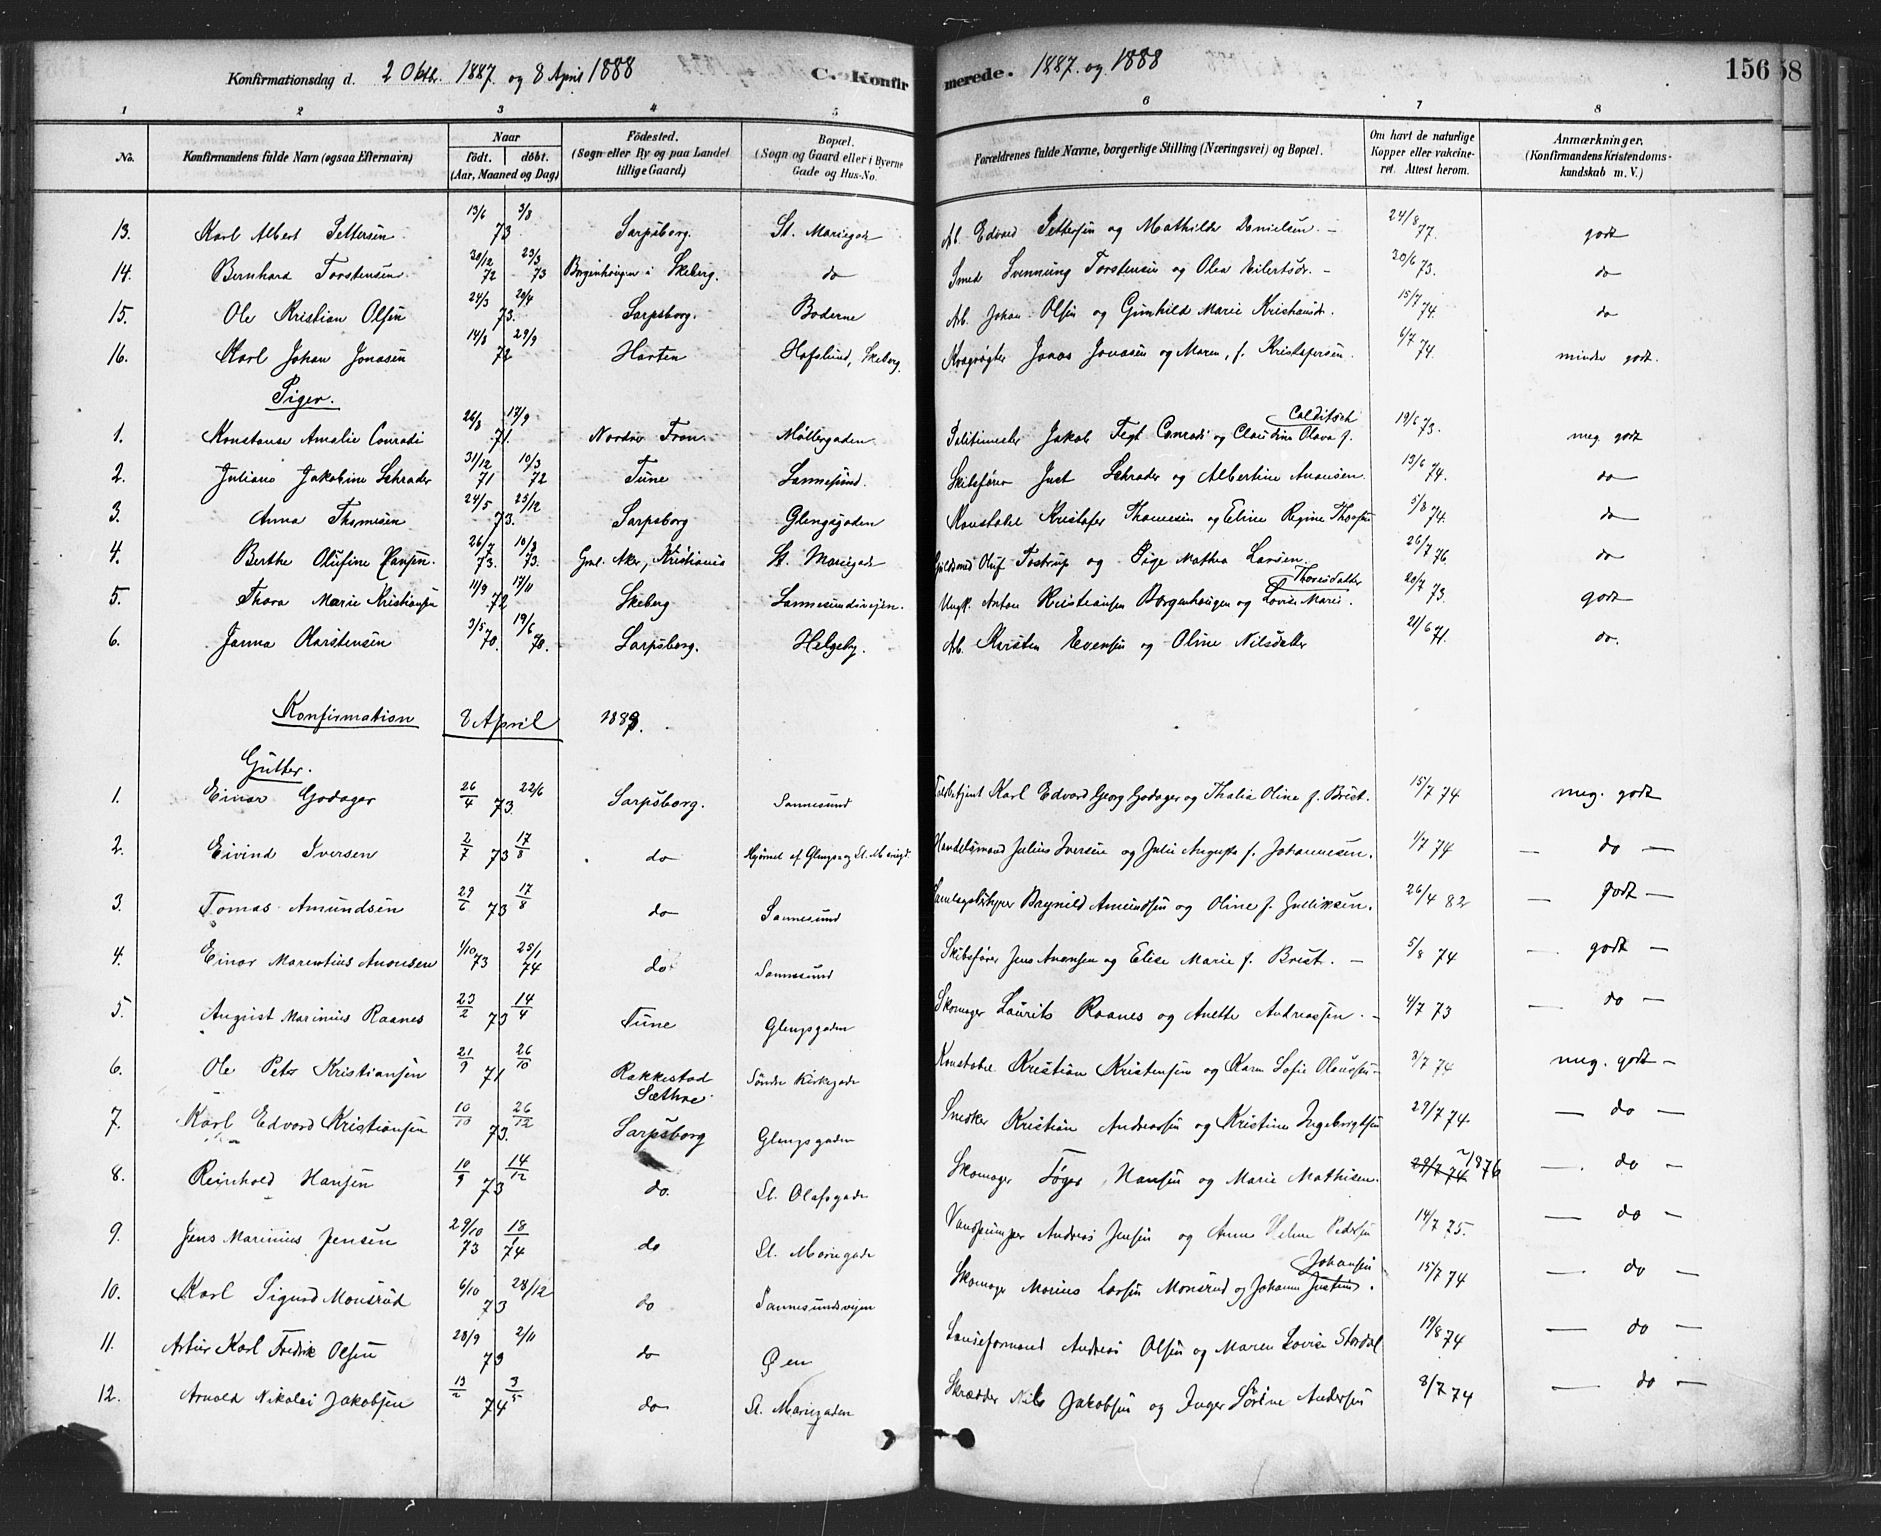 Konfirmationsdag d. 2 Oktbr. 1887 og 8 April 1888 C. Konfirmerede. 1887. og 1888 156 58
1 2 3 4 5 6 7 8
No. Konfirmandens fulde Navn (ogsaa Efternavn) Naar födt. döbt. (Aar, Maaned og Dag) Födested. (Sogn eller By og paa Landet tillige Gaard) Bopæl. (Sogn og Gaard eller i Byerne Gade og Hus-No. Forældrenes fulde Navne, borgerlige Stilling (Næringsvei) og Bopæl. Om havt de naturlige Kopper eller vakcineret. Attest herom. Anmærkninger, (Konfirmandens Kristendomskundskab m. V.)
13. Karl Albert Pettersen 13/6 3/8 73 Sarpsborg. St. Mariegade Ab. Edvard Pettersen og Mathilde Danielsen. - 24/8 77. godt
14. Bernhard Torstensen. 20/12 72 23/3 73 Borgenhougen i Skeberg. do Smed Svennung Torstensen og Olea Eilertsdr. - 20/6 73. do
15. Ole Kristian Olsen 24/3 20/4 73. Sarpsborg. Boderne Ab. Johan Olsen og Gunhild Marie Kristiansdr. 15/7 74. do
16. Karl Johan Jonasen 14/8 29/9 72 Horten Hafslund, Skeberg. Jonas Jonasen og Maren, f. Kristofersen. 6/7 74. minder godt.
Piger.
1. Konstanse Amalie Conradi 26/8 17/9 71. Nordre Fron. Møllergaden. Politimester Jakob Tegt Conradi og Claudine Olava f. Colditsch 19/6 73. meg godt
2. Juliane Jakobine Schrader 31/12 71 10/3 72 Tune Sannesund. Skibsfører Just Schrader og Albertine Anonsen. 13/6 74. do
3. Anna Thomesen 24/5 25/12 73. Sarpsborg Glengsgaden Konstabel Kristofer Thomesen og Eline Regine Thorsen 5/8 74. do
4. Berthe Olufine Hansen. 26/7 73. 10/8 73. Gml. Aker, Kristiania St. Mariegade Guldsmed Oluf Tostrup og Pige Mathea Larsen 26/7 76. do
5. Thora Marie Kristiansen 11/9 17/11 72 Skeberg Sannesundsvejen. Ungk. Anton Kristiansen Borgenhougen og Lovise Marie Thoresdatter. 20/7 73. godt
6. Janna Karstensen 3/5 70. 19/6 70. Sarpsborg. Helgeby. Ab. Karsten Evensen og Oline Nilsdatter 21/6 71. do.
Konfirmation 8 April 1888.
Gutter.
1. Einar Godager 26/4 22/6 73. Sarpsborg. Sannesund Toldbetjent Karl Edvard Georg Godager og Thalia Oline f. Brist. 15/7 74 meg. godt
2. Eivind Iversen 2/7 17/8 73 do Hjørnet af Glengs- og St. Marieg. Handelsmand Julius Iversen og Julie Augusta f. Johannesen. 1/7 74 — do —
3. Tomas Amundsen 29/6 17/8 73 do Sannesund Samlagsbestyrer Bagnild Amundsen og Oline f. Gulliksen. 26/4 82 — godt —
4. Einar Marentius Anonsen 1/10 73 25/1 74 do Sannesund Skibsfører Jens Anonsen og Elise Marie f. Brist. — 5/8 74 — godt —
5. August Marinius Raanes 23/2 14/4 73 Tune Glengsgaden Skomager Laurits Raanes og Anette Andreassen. - 4/7 73 — do —
6. Ole Peter Kristiansen 21/9 26/10 71 Rakkestad Søndre Kirkegade Konstabel Kristian Kristensen og Karen Sofie Olaussen 3/7 74 meg. godt -
7. Karl Edvard Kristiansen 10/10 26/12 73. Sæthre Sarpsborg Glengsgaden Snedker Kristian Andreassen og Kristine Ingeborgtsen 29/7 74 — do —
8. Reinhold Hansen 10/9 14/12 73 do. St. Olafsgade Skomager Tøger Hansen og Marie Mathisen. 29/7 74 2/8 76 —. do —
9. Jens Marinius Jensen 29/10 73 18/1 74 do St. Mariegade Andreas Jensen og Anne Helene Pedersen 14/7 75. — do —
10. Karl Sigurd Monsrud 6/10 28/12 73 do Sannesundsvejen Skomager Marius Larsen Monsrud og Johanne Justine Johansen. 15/7 74 —. do —
11. Artur Karl Fredrik Olsen 28/9 2/11 73 do Øen Lanseformand Andreas Olsen og Maren Lovise Stordal 19/8 74 — do —
12. Arnold Nikolai Jakobsen 13/2 3/5 74 do St. Mariegaden Skrædder Nils Jakobsen og Inger Sørine Andersen 8/7 74 — do —